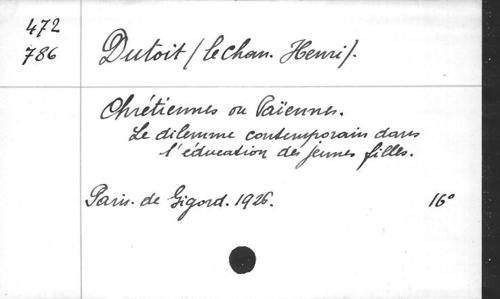 472
786
Dutoit (le chan. Henri).
Chrétiennes ou Païennes.
Le dilemme contemporain dans
l'éducation des jeunes filles.
Paris. de Gigord. 1926. 16°